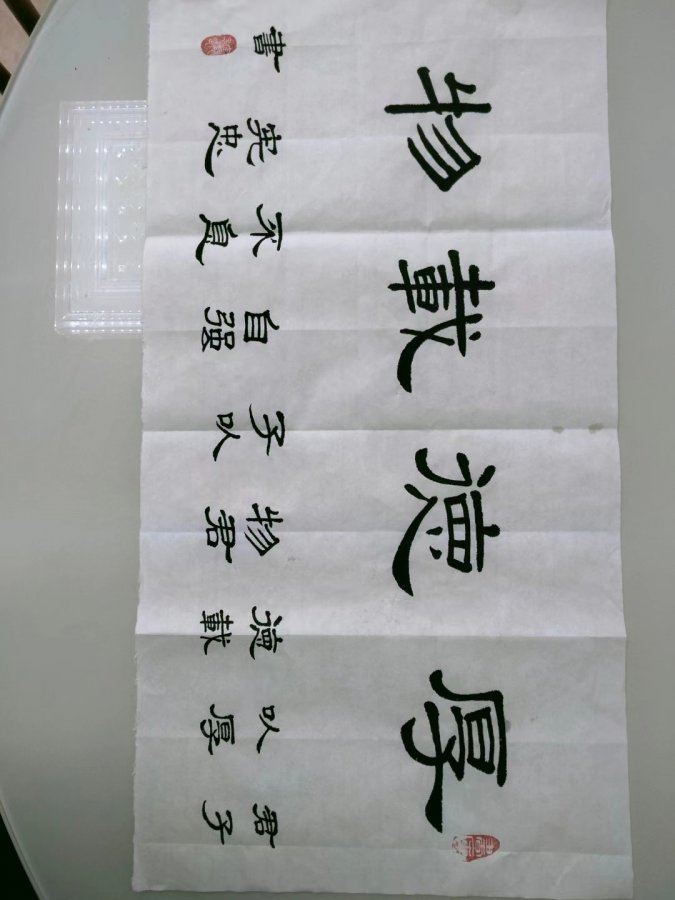 厚德載物
君子
以厚
德載
物君
子以
自强
不息
忠
書